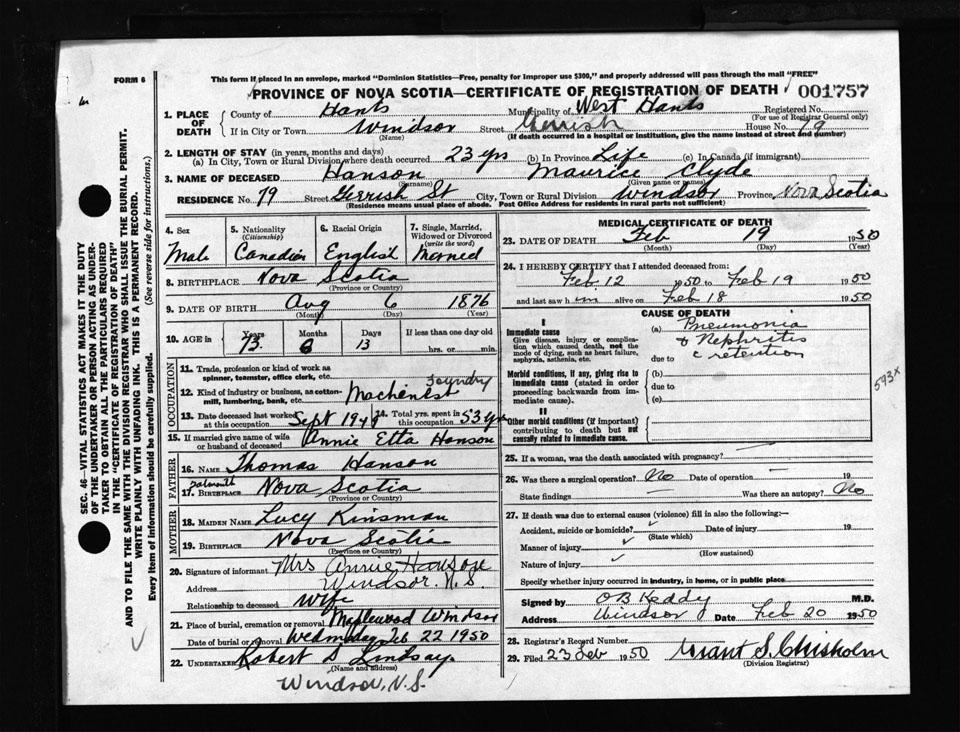 FORM 6
This form if placed in an envelope, marked "Dominion Statistics—Free, penalty for improper use $300," and properly addressed will pass through the mail "FREE"
PROVINCE OF NOVA SCOTIA—CERTIFICATE OF REGISTRATION OF DEATH 001757
1. PLACE OF DEATH
County of Hants Municipality of West Hants Registered No.
(For use of Registrar General only)
If in City or Town Windsor Street Gerrish House No. 79
(Name) (If death occurred in a hospital or institution, give the name instead of street and number)
2. LENGTH OF STAY (in years, months and days)
(a) In City, Town or Rural Division where death occurred 23 yrs (b) In Province Life (c) In Canada (if immigrant)
3. NAME OF DECEASED Hanson Maurice Clyde
(Surname) (Given name or names)
RESIDENCE No. 79 Street Gerrish St City, Town or Rural Division Windsor Province Nova Scotia
(Residence means usual place of abode. Post Office Address for residents in rural parts not sufficient)
4. Sex
Male
5. Nationality
(Citizenship)
Canadian
6. Racial Origin
English
7. Single, Married, Widowed or Divorced
(write the word)
Married
8. BIRTHPLACE Nova Scotia
(Province or Country)
9. DATE OF BIRTH Aug 6 1876
(Month) (Day) (Year)
10. AGE in
Years Months Days If less than one day old
73 6 13 hrs. or min.
OCCUPATION
11. Trade, profession or kind of work as
spinner, teamster, office clerk, etc.
12. Kind of industry or business, as cotton-
mill, lumbering, bank, etc. Machenest
13. Date deceased last worked
at this occupation Sept 194
14. Total yrs. spent in
this occupation 53 yrs
15. If married give name of wife
or husband of deceased Annie Etta Hanson
FATHER
16. Name Thomas Hanson
17. Birthplace Nova Scotia
(Province or Country)
MOTHER
18. Maiden Name Lucy Kinsman
19. Birthplace Nova Scotia
(Province or Country)
20. Signature of informant Mrs Annie Hanson
Address Windsor. N.S
Relationship to deceased Wife
21. Place of burial, cremation or removal Maplewood Windsor
Date of burial or removal Wednesday Feb 22 1950
22. Undertaker Robert S Lindsay
(Name and address)
Windsor, N.S.
MEDICAL CERTIFICATE OF DEATH
23. DATE OF DEATH Feb 19 1950
(Month) (Day) (Year)
24. I HEREBY CERTIFY that I attended deceased from:
Feb. 12 1950 to Feb 19 1950
and last saw him alive on Feb 18 1950
CAUSE OF DEATH
I
Immediate cause
Give disease, injury or complica-
tion which caused death, not the
mode of dying, such as heart failure,
asphyxia, asthenia, etc.
(a) Pneumonia
& Nephritis
due to c retention
Morbid conditions, if any, giving rise to
immediate cause (stated in order
proceeding backwards from im-
mediate cause).
(b)
due to
(c)
593x
II
Other morbid conditions (if important)
contributing to death but not
causally related to immediate cause.
25. If a woman, was the death associated with pregnancy?
26. Was there a surgical operation? No Date of operation 19
State findings Was there an autopsy? No
27. If death was due to external causes (violence) fill in also the following:—
Accident, suicide or homicide? Date of injury 19
(State which)
Manner of injury
(How sustained)
Nature of injury
Specify whether injury occurred in industry, in home, or in public place
Signed by O B Keddy M.D.
Address Windsor Date Feb 20 1950
28. Registrar's Record Number
29. Filed 23 Feb 1950 Grant S. Chisholm
(Division Registrar)
SEC. 46—VITAL STATISTICS ACT MAKES IT THE DUTY
OF THE UNDERTAKER OR PERSON ACTING AS UNDER-
TAKER TO OBTAIN ALL THE PARTICULARS REQUIRED
IN THE "CERTIFICATE OF REGISTRATION OF DEATH"
AND TO FILE THE SAME WITH THE DIVISION REGISTRAR WHO SHALL ISSUE THE BURIAL PERMIT.
WRITE PLAINLY WITH UNFADING INK. THIS IS A PERMANENT RECORD.
Every item of information should be carefully supplied. (See reverse side for instructions.)